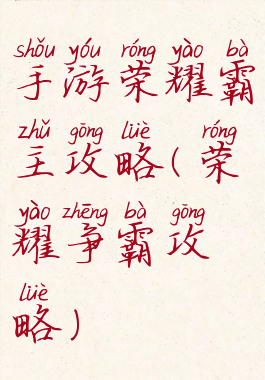 shǒu yóu róng yào bà
手游荣耀霸
zhǔ gōng lüè róng
主攻略(荣
yào zhēng bà gōng
耀争霸攻
lüè
略)